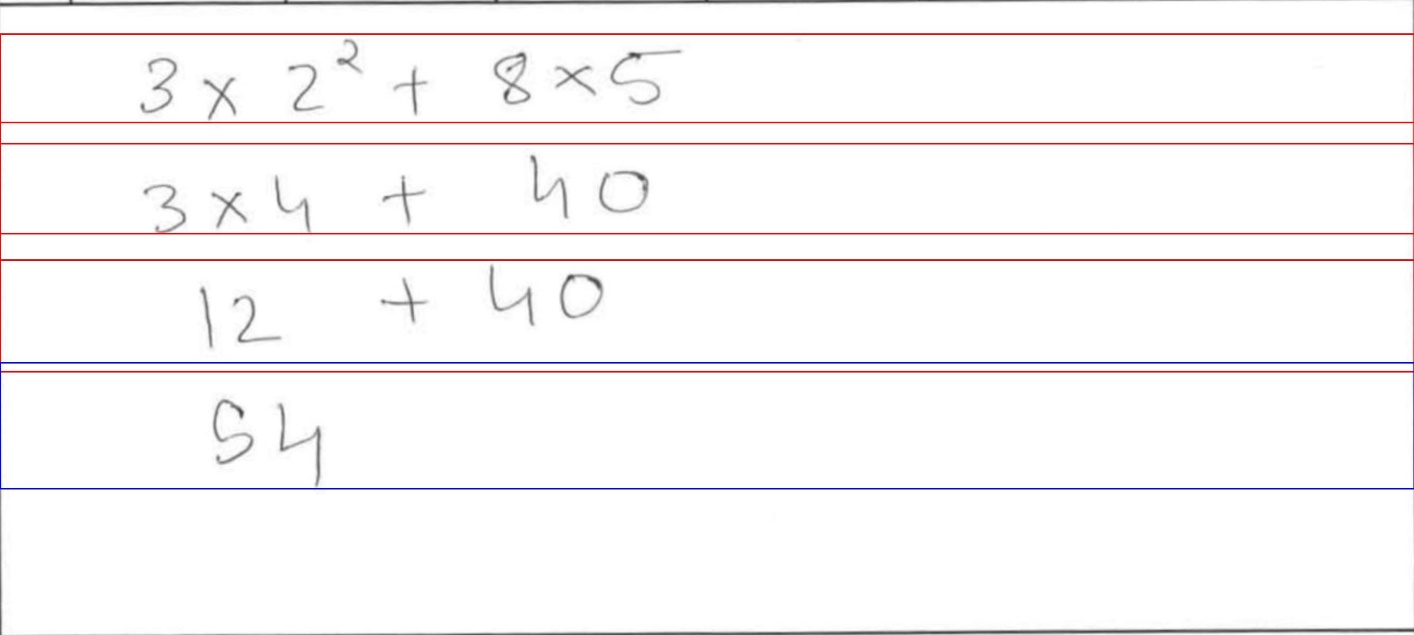 3 × 2² + 8 × 5
3 × 4 + 40
12 + 40
54